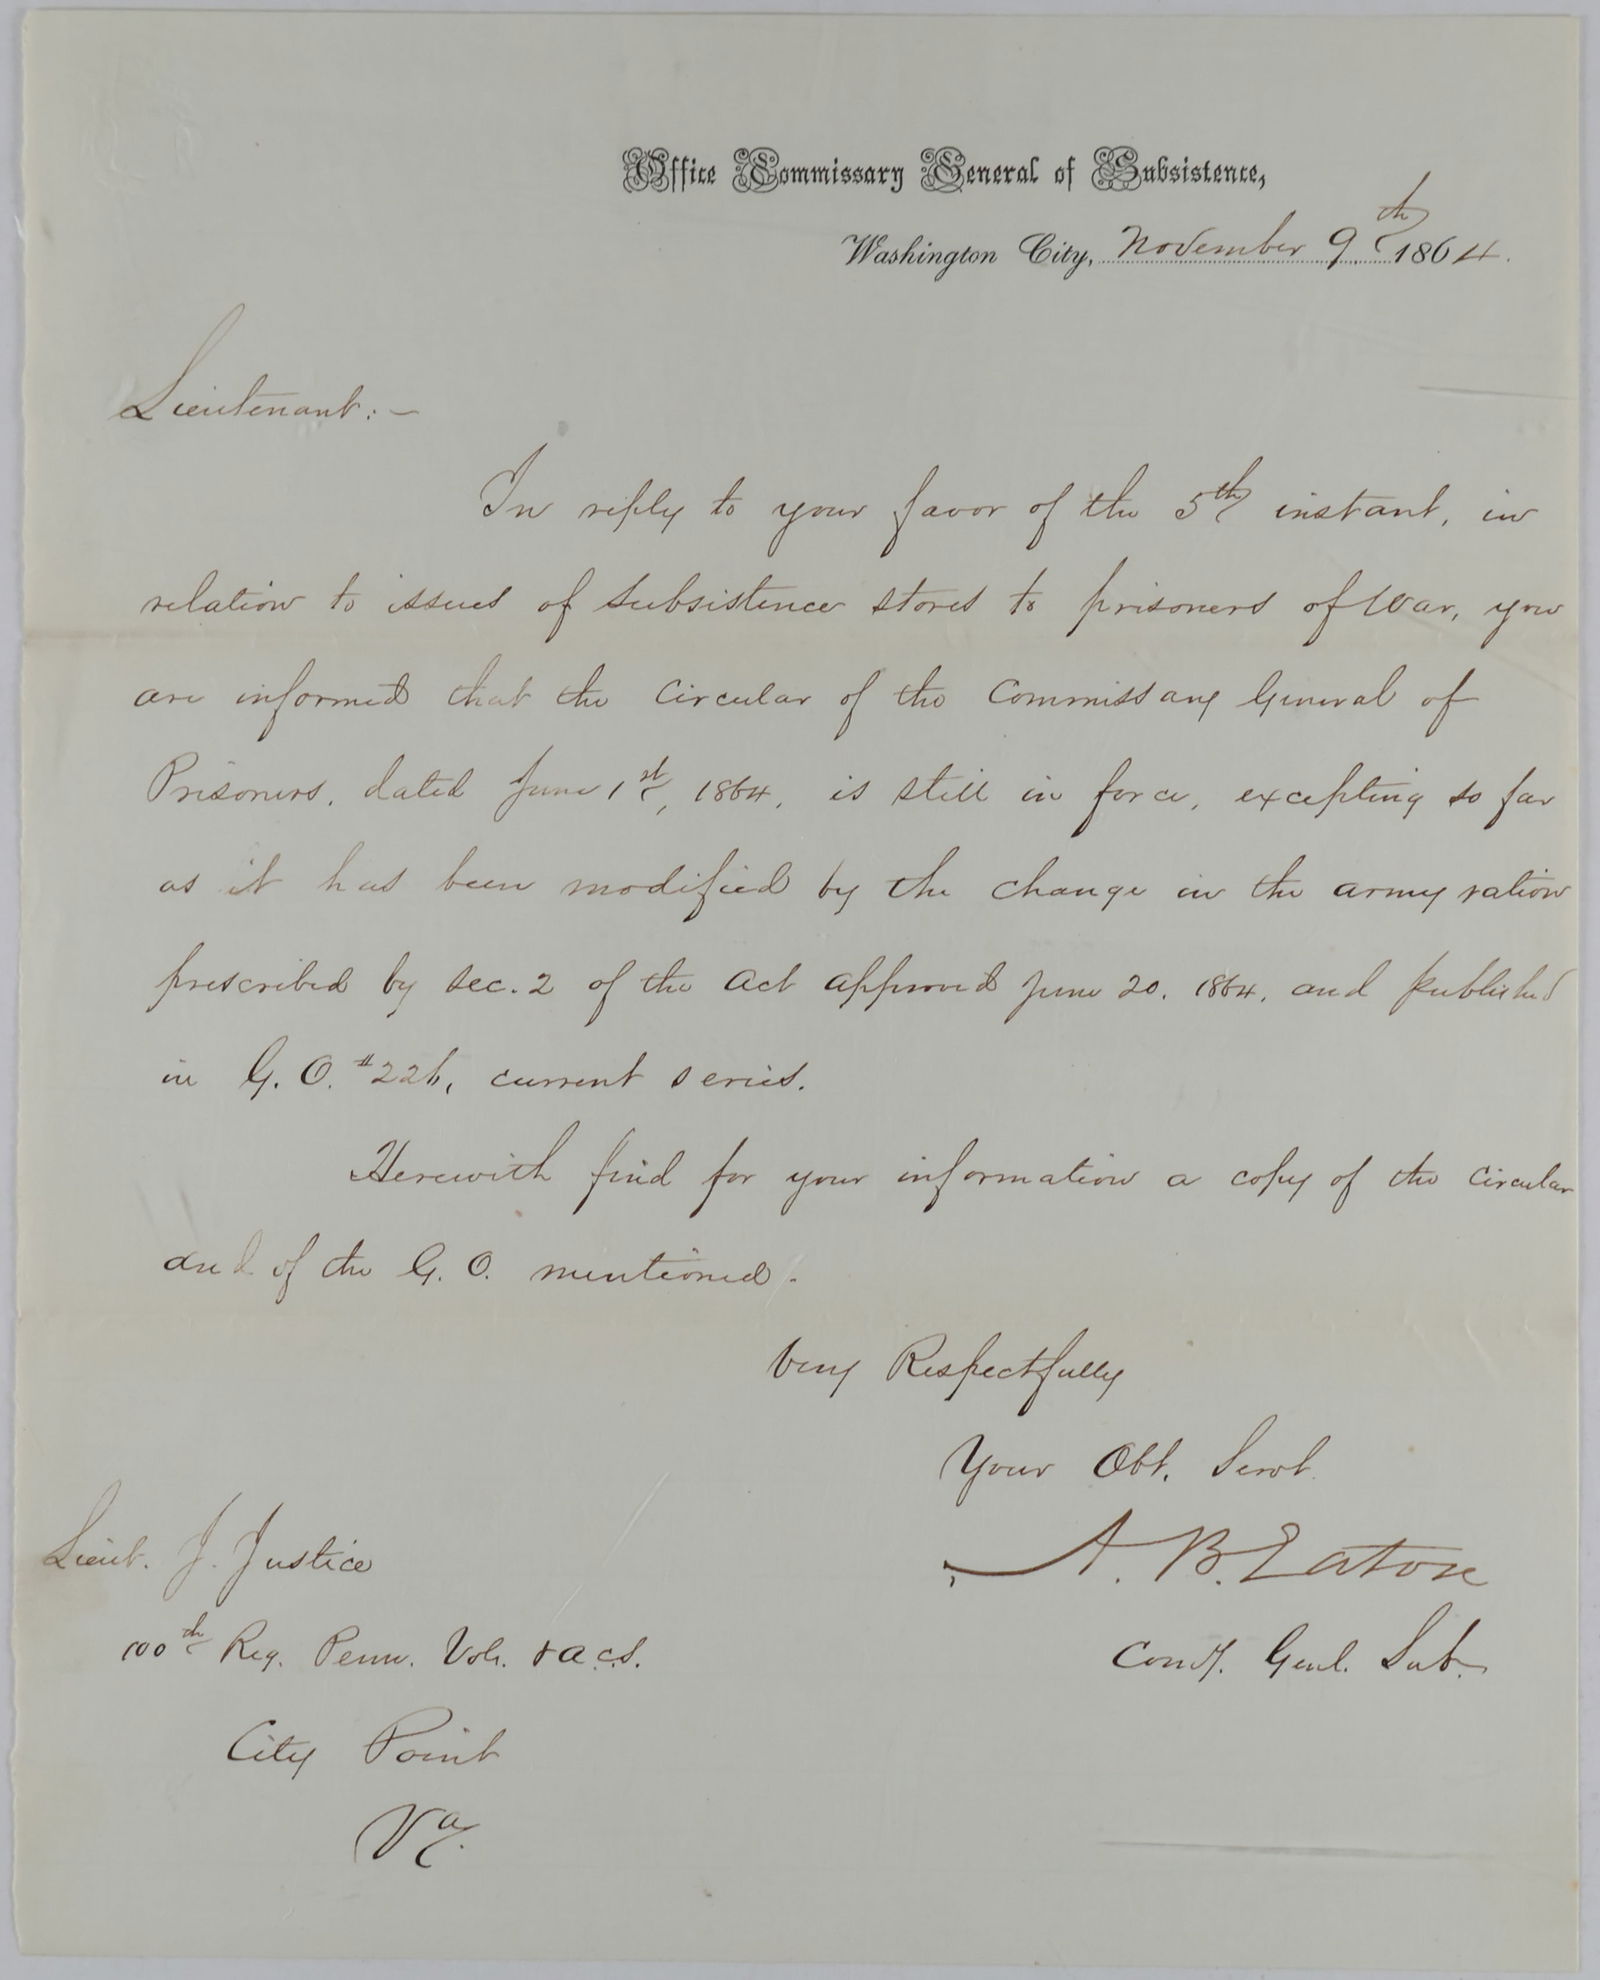 Office Commissary General of Subsistence,
Washington City, November 9th 1864.
Lieutenant:—
In reply to your favor of the 5th instant, in
relation to issues of subsistence stores to prisoners of War, you
are informed that the Circular of the Commissary General of
Prisoners, dated June 1st, 1864, is still in force, excepting so far
as it has been modified by the change in the army ration
prescribed by Sec. 2 of the Act approved June 20. 1864, and published
in G. O. #226, current series.
Herewith find for your information a copy of the Circular
and of the G. O. mentioned.
Very Respectfully
Your Obt. Servt.
A. B. Eaton
Comy. Genl. Sub.
Lieut. J. Justice
100th Reg. Penn. Vols. & a.c.s.
City Point
Va.